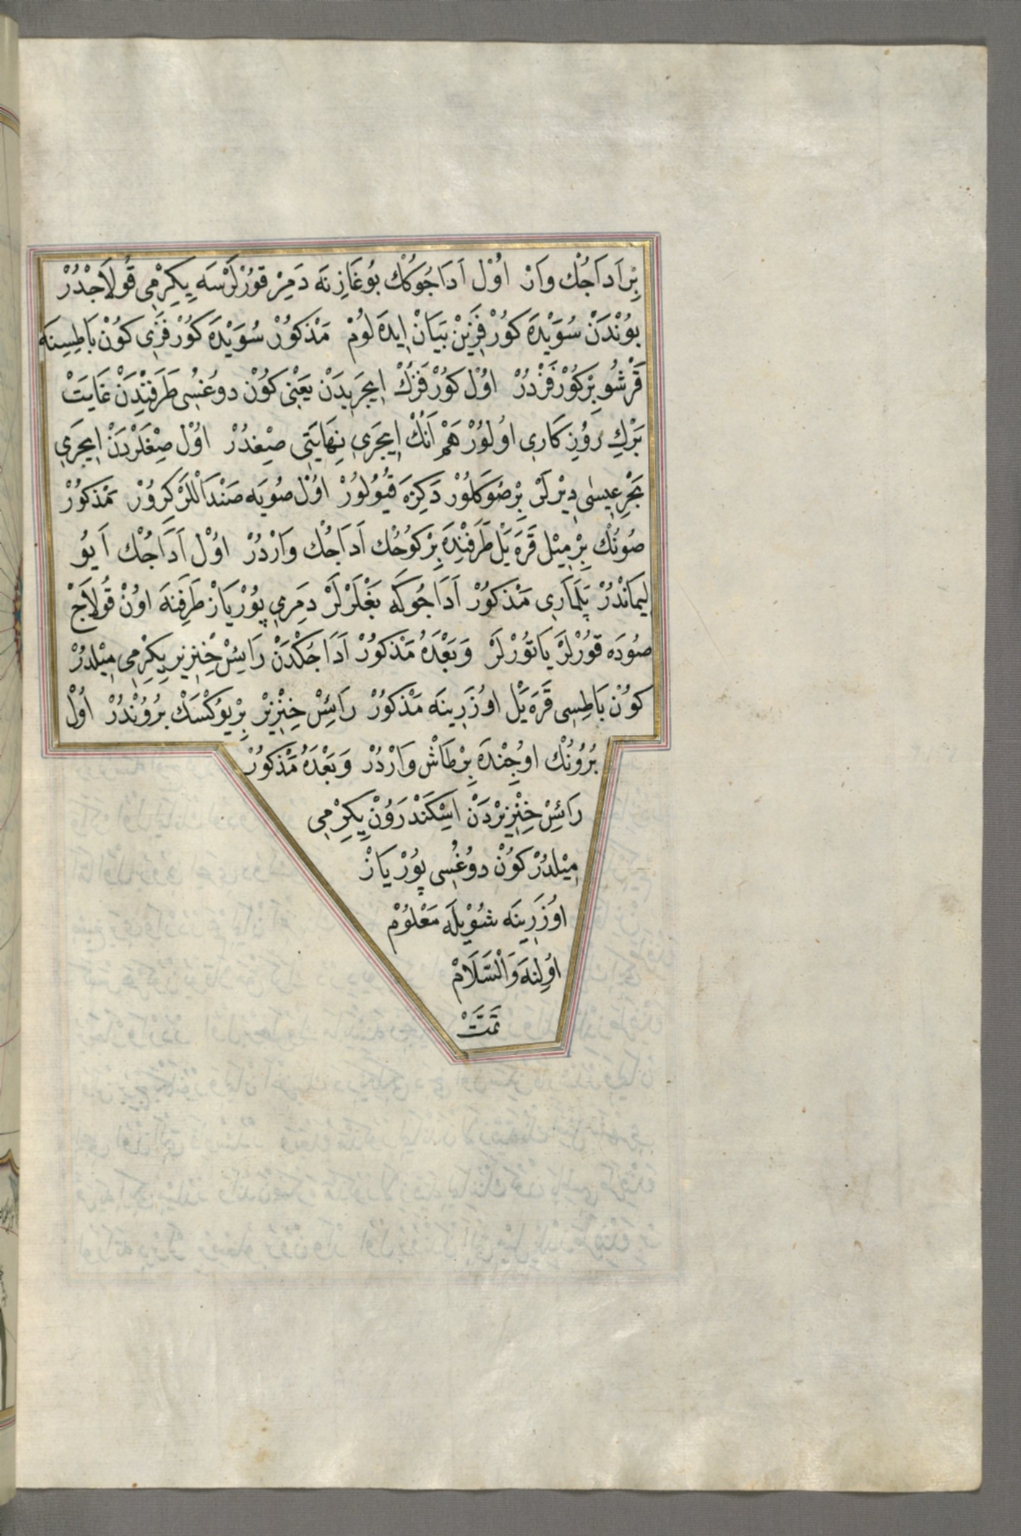 بِرْ اَدَاجُكْ وَارْ اُوْل اَدَاجُوكُكْ بُوغَازِنَه دَمِرْ قُوزْلَرْسَه يِكِرْمِي قُولَاجْدُرْ
بُونْدَنْ سُوَيْدَه كُورْفَزِينْ بَيَانْ اِيدَه لُومْ مَذْكُورْ سُوَيْدَه كُورْفَزِي كُونْ بَاطِسِنَه
قَرْشُو بِرْ كُورْفَزْدُرْ اُوْل كُورْفَزُكْ اِيچَرِيدَنْ يَعْنِي كُونْ دُوغُسِي طَرَفِنْدَنْ غَايَتْ
بَرْكْ رُوزِكَارِي اُولُورْ هَمْ اَنُكْ اِيچَرِي نِهَايَتِي صِيغْدُرْ اُوْل صِيغْلَرْدَنْ اِيچَرِي
بَحْرِ عِيسٰى دِيرْلَرْ بِرْ صُو كَلُورْ دَكِزَه قُيُولُورْ اُوْل صُويَه صَنْدَاللَرْ كِرُورْ مَذْكُورْ
صُونُكْ بِرْ مِيلْ قَرَه يَلْ طَرَفِنْدَه بِرْ كُوجُكْ اَدَاجُكْ وَارْدُرْ اُوْل اَدَاجُكْ اَيُو
لِيمَانْدُرْ پَلَمَارِي مَذْكُورْ اَدَاجُوكَه بَغْلَرْلَرْ دَمِرِي پُورْيَازْ طَرَفِنَه اُونْ قُولَاجْ
صُودَه قُورْلَرْ يَاتُورْلَرْ وَبَعْدَهُ مَذْكُورْ اَدَاجُكْدَنْ رَائِسْ خِنْزِيرْ يِكِرْمِي مِيلْدُرْ
كُونْ بَاطِسِي قَرَه يَلْ اُوزَرِينَه مَذْكُورْ رَائِسْ خِنْزِيرْ بِرْ يُوكْسَكْ بُرُونْدُرْ اُوْل
بُرُونُكْ اُوجِنْدَه بِرْ طَاشْ وَارْدُرْ وَبَعْدَهُ مَذْكُورْ
رَائِسْ خِنْزِيرْدَنْ اِسْكَنْدَرُونْ يِكِرْمِي
مِيلْدُرْ كُونْ دُوغُسِي پُورْيَازْ
اُوزَرِينَه شُويْلَه مَعْلُومْ
اُولِنَه وَالسَّلَامْ
تَمَّتْ